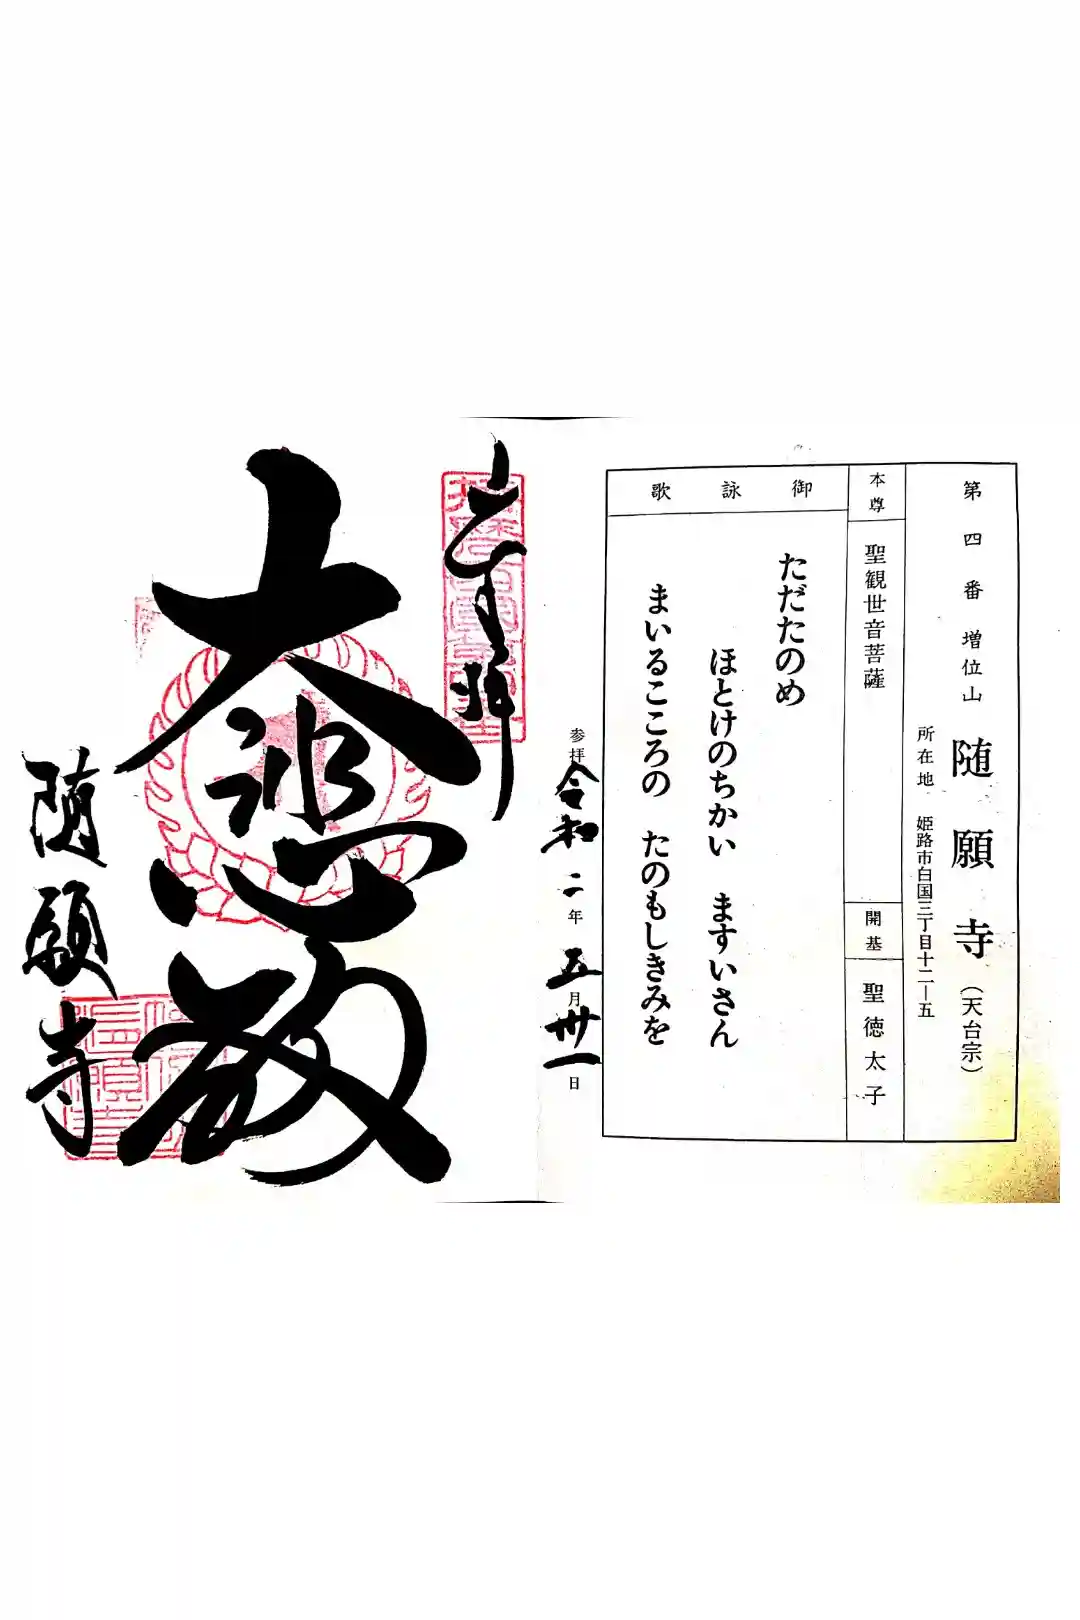 第四番 増位山 随願寺 (天台宗)
所在地 姫路市白国三丁目十二―五
本尊
聖観世音菩薩
開基
聖徳太子
御詠歌
ただたのめ
ほとけのちかい ますいさん
まいるこころの たのもしきみを
参拝 令和二年五月卅一日
奉拝
大悲殿
随願寺